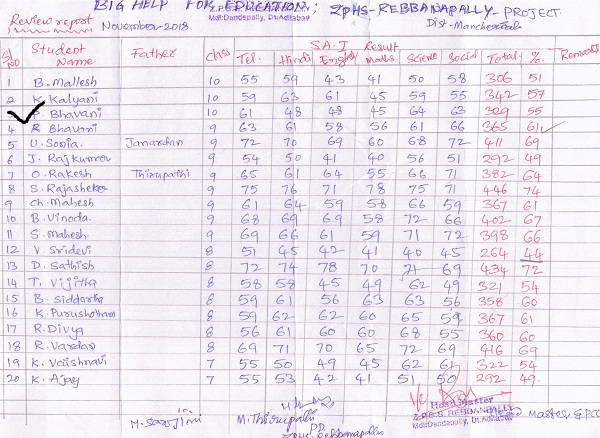 BIG HELP FOR EDUCATION; ZPHS-REBBANAPALLY-PROJECT
Review report November-2018 Mdl:Dandepally, Dt.Adilabad Dist-Mancherial
SA-I Result
Sl NO Student Name Father Class Tel. Hindi English Maths Science Social Total % Remarks
1 B. Mallesh 10 55 59 43 41 50 58 306 51
2 K. Kalyani 10 59 63 61 45 59 55 342 57
P. Bhavani 10 61 48 48 45 64 63 329 55
4 R Bhavani 9 63 61 58 56 61 66 365 61
5 U. Sonia. Janardan 9 72 70 69 60 68 72 411 69
6 J. Rajkumar 9 54 50 41 40 56 51 292 49
7 O. Rakesh Thirupathi 9 65 61 64 55 66 71 382 64
8 S. Rajasheker 9 75 76 71 78 75 71 446 74
9 Ch. Mahesh 9 61 64 59 58 66 59 367 61
10 B. Vinoda 9 68 69 69 58 72 66 402 67
11 S. Mahesh 9 69 66 61 59 71 72 398 66
12 V. Sridevi 8 51 45 42 41 40 45 264 44
13 D. Sathish 8 72 74 78 70 71 69 434 72
14 T. Vijitha 8 58 58 45 49 62 49 321 54
15 B. Siddartha 8 59 61 56 63 63 56 358 60
16 K. Purushotham 8 59 62 62 60 65 59 367 61
17 R. Divya 8 56 61 60 60 68 55 360 60
18 R. Vardan 8 69 71 70 65 72 69 416 69
19 K. Vaishnavi 7 55 50 49 45 62 61 322 54
20 K. Ajay 7 55 53 42 41 51 50 292 49.
M. Sarojini M. Thirupathi PD ZPHS-Rebbanapally Head Master Z.P.H.S. REBBANAPALLY Mdl:Dandepally, Dt:Adilabad Head Master